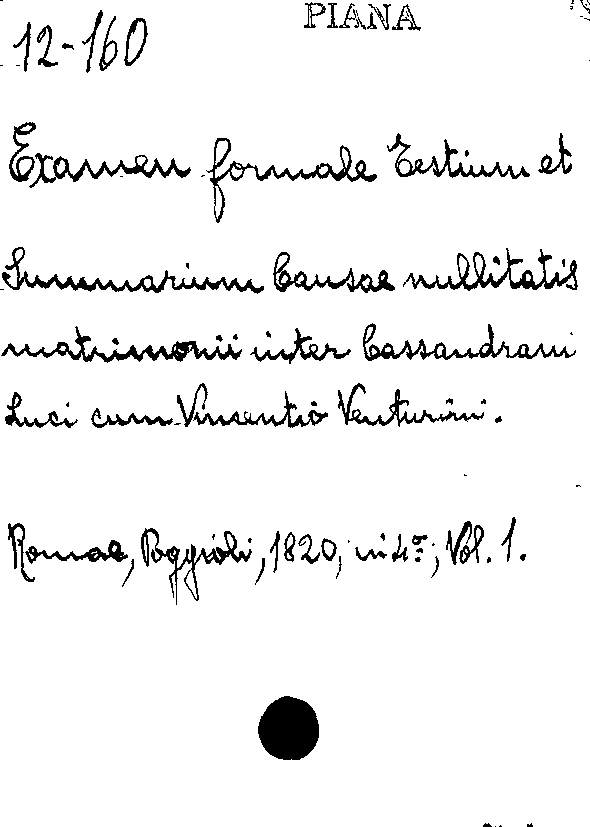 PIANA
12-160
Examen formale Testium et
Summarium Causae nullitatis
matrimonii inter Cassandram
Luci cum Vincentio Venturini.
Romae, Poggioli, 1820, in 4º; Vol. 1.